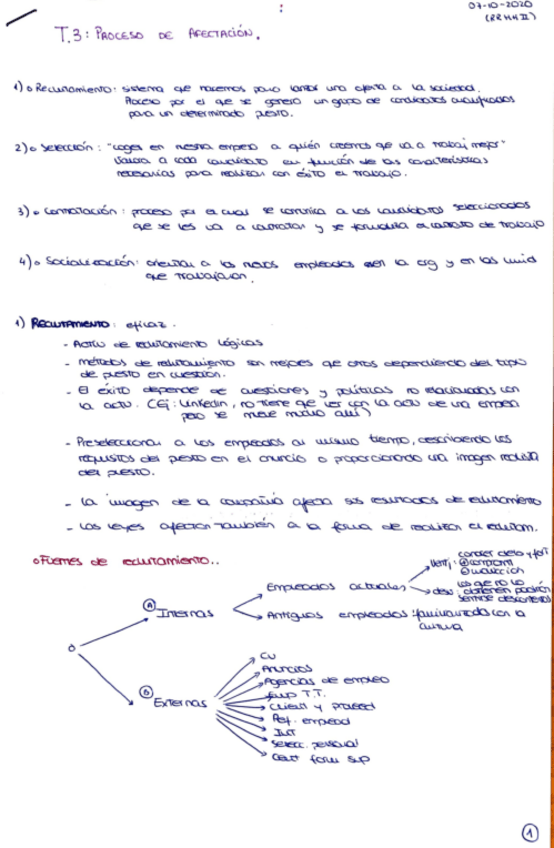 07-10-2020
(RRHH II)
T.3: PROCESO DE AFECTACIÓN.
1) o Reclutamiento: sistema que hacemos para lanzar una oferta a la sociedad.
Proceso por el que se genera un grupo de candidatos cualificados
para un determinado puesto.
2) o Selección: "Coges en nuestra empresa a quién creemos que va a trabaj mejor"
Valora a cada candidato en función de las características
necesarias para realizar con éxito el trabajo.
3) o Contratación: proceso por el cual se comunica a los candidatos seleccionados
que se les va a contratar y se formaliza el contrato de trabajo
4) o Socialización: orientar a los nuevos empleados en la org y en las unid
que trabajaran.
1) RECLUTAMIENTO: eficaz.
- Activ de reclutamiento lógicas
- métodos de reclutamiento son mejores que otros dependiendo del tipo
de puesto en cuestión.
- El éxito depende de cuestiones y políticas no relacionadas con
la activ. (Ej: Linkedin, no tiene que ver con la activ de una empresa
pero se mueve mucho ahí)
- Preseleccionar a los empleados al mismo tiempo, describiendo los
requisitos del puesto en el anuncio o proporcionando una imagen realista
del puesto.
- La imagen de la compañía afecta sus resultados de reclutamiento
- Las leyes afectan también a la forma de realizar el reclutam.
o Fuentes de reclutamiento..
A Internas
Empleados actuales
Vent:
conocer debi y fort
desv: los que no lo
obtienen podrán
sentirse descontentos
Antiguos empleados: familiarizado con la
cultura
B Externas
CV
Anuncios
Agencias de empleo
Emp T.T.
Client y proveed
Ref. emplead
INT
Selecc. personal
Cent form sup
1